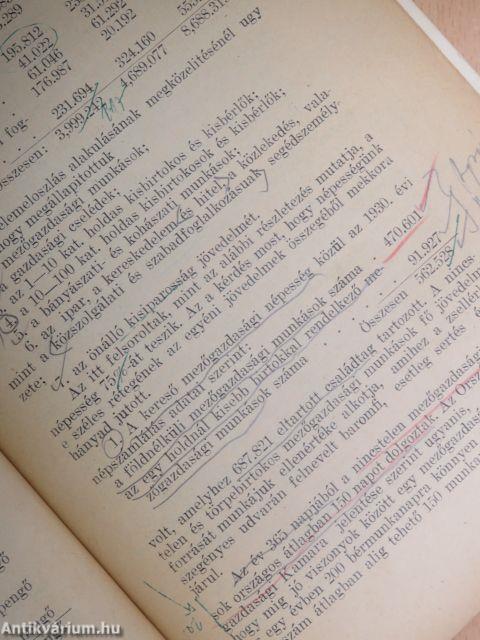 195.812
41.022
61.046
176.987
61.292
20.192
fog-
231.694
324.160
összesen:
3,999.242
4,689.077
8,688.31
elemeloszlás alakulásának megközelítésénél ugy
hogy megállapítottuk
mezőgazdasági munkások;
gazdasági cselédek;
az 1—10 kat. holdas kisbirtokos és kisbérlők;
a 10—100 kat. holdas kisbirtokosok és kisbérlők;
5. a bányászati- és kohászati munkások;
6. az ipar, a kereskedelem és hitel, a közlekedés, vala-
mint a közszolgálati és szabadfoglalkozásuak segédszemély-
zete;
7. az önálló kisiparosság jövedelmét.
Az itt felsoroltak, mint az alábbi részletezés mutatja, a
népesség
teszik. Az a kérdés most, hogy népességünk
e széles rétegének az egyéni jövedelmek összegéből mekkora
hányad jutott.
1. A kereső mezőgazdasági népesség közül az 1930. évi
népszámlálás adatai szerint:
a földnélküli mezőgazdasági munkások száma . . 470.601
az egy holdnál kisebb birtokkal rendelkező me-
zőgazdasági munkások száma . . . 91.927
Összesen 562.528
volt, amelyhez 687.821 eltartott családtag tartozott. A nincs-
telen és törpebirtokos mezőgazdasági munkások fő jövedelm
forrását munkájuk ellenértéke alkotja, amihez a zsellér
szegényes udvarán felnevelt baromfi, esetleg sertés é
járul.
Az év 365 napjából a nincstelen mezőgazdasági
sok országos átlagban 150 napot dolgozott. Az Orsz
gazdasági Kamara jelentése szerint ugyanis,
hogy míg jó viszonyok között egy mezőgazdasá
egy évben 200 bérmunkanapra könnyen
szám átlagban alig tehető 150 munka
engő
pengő
Antikvárium.hu